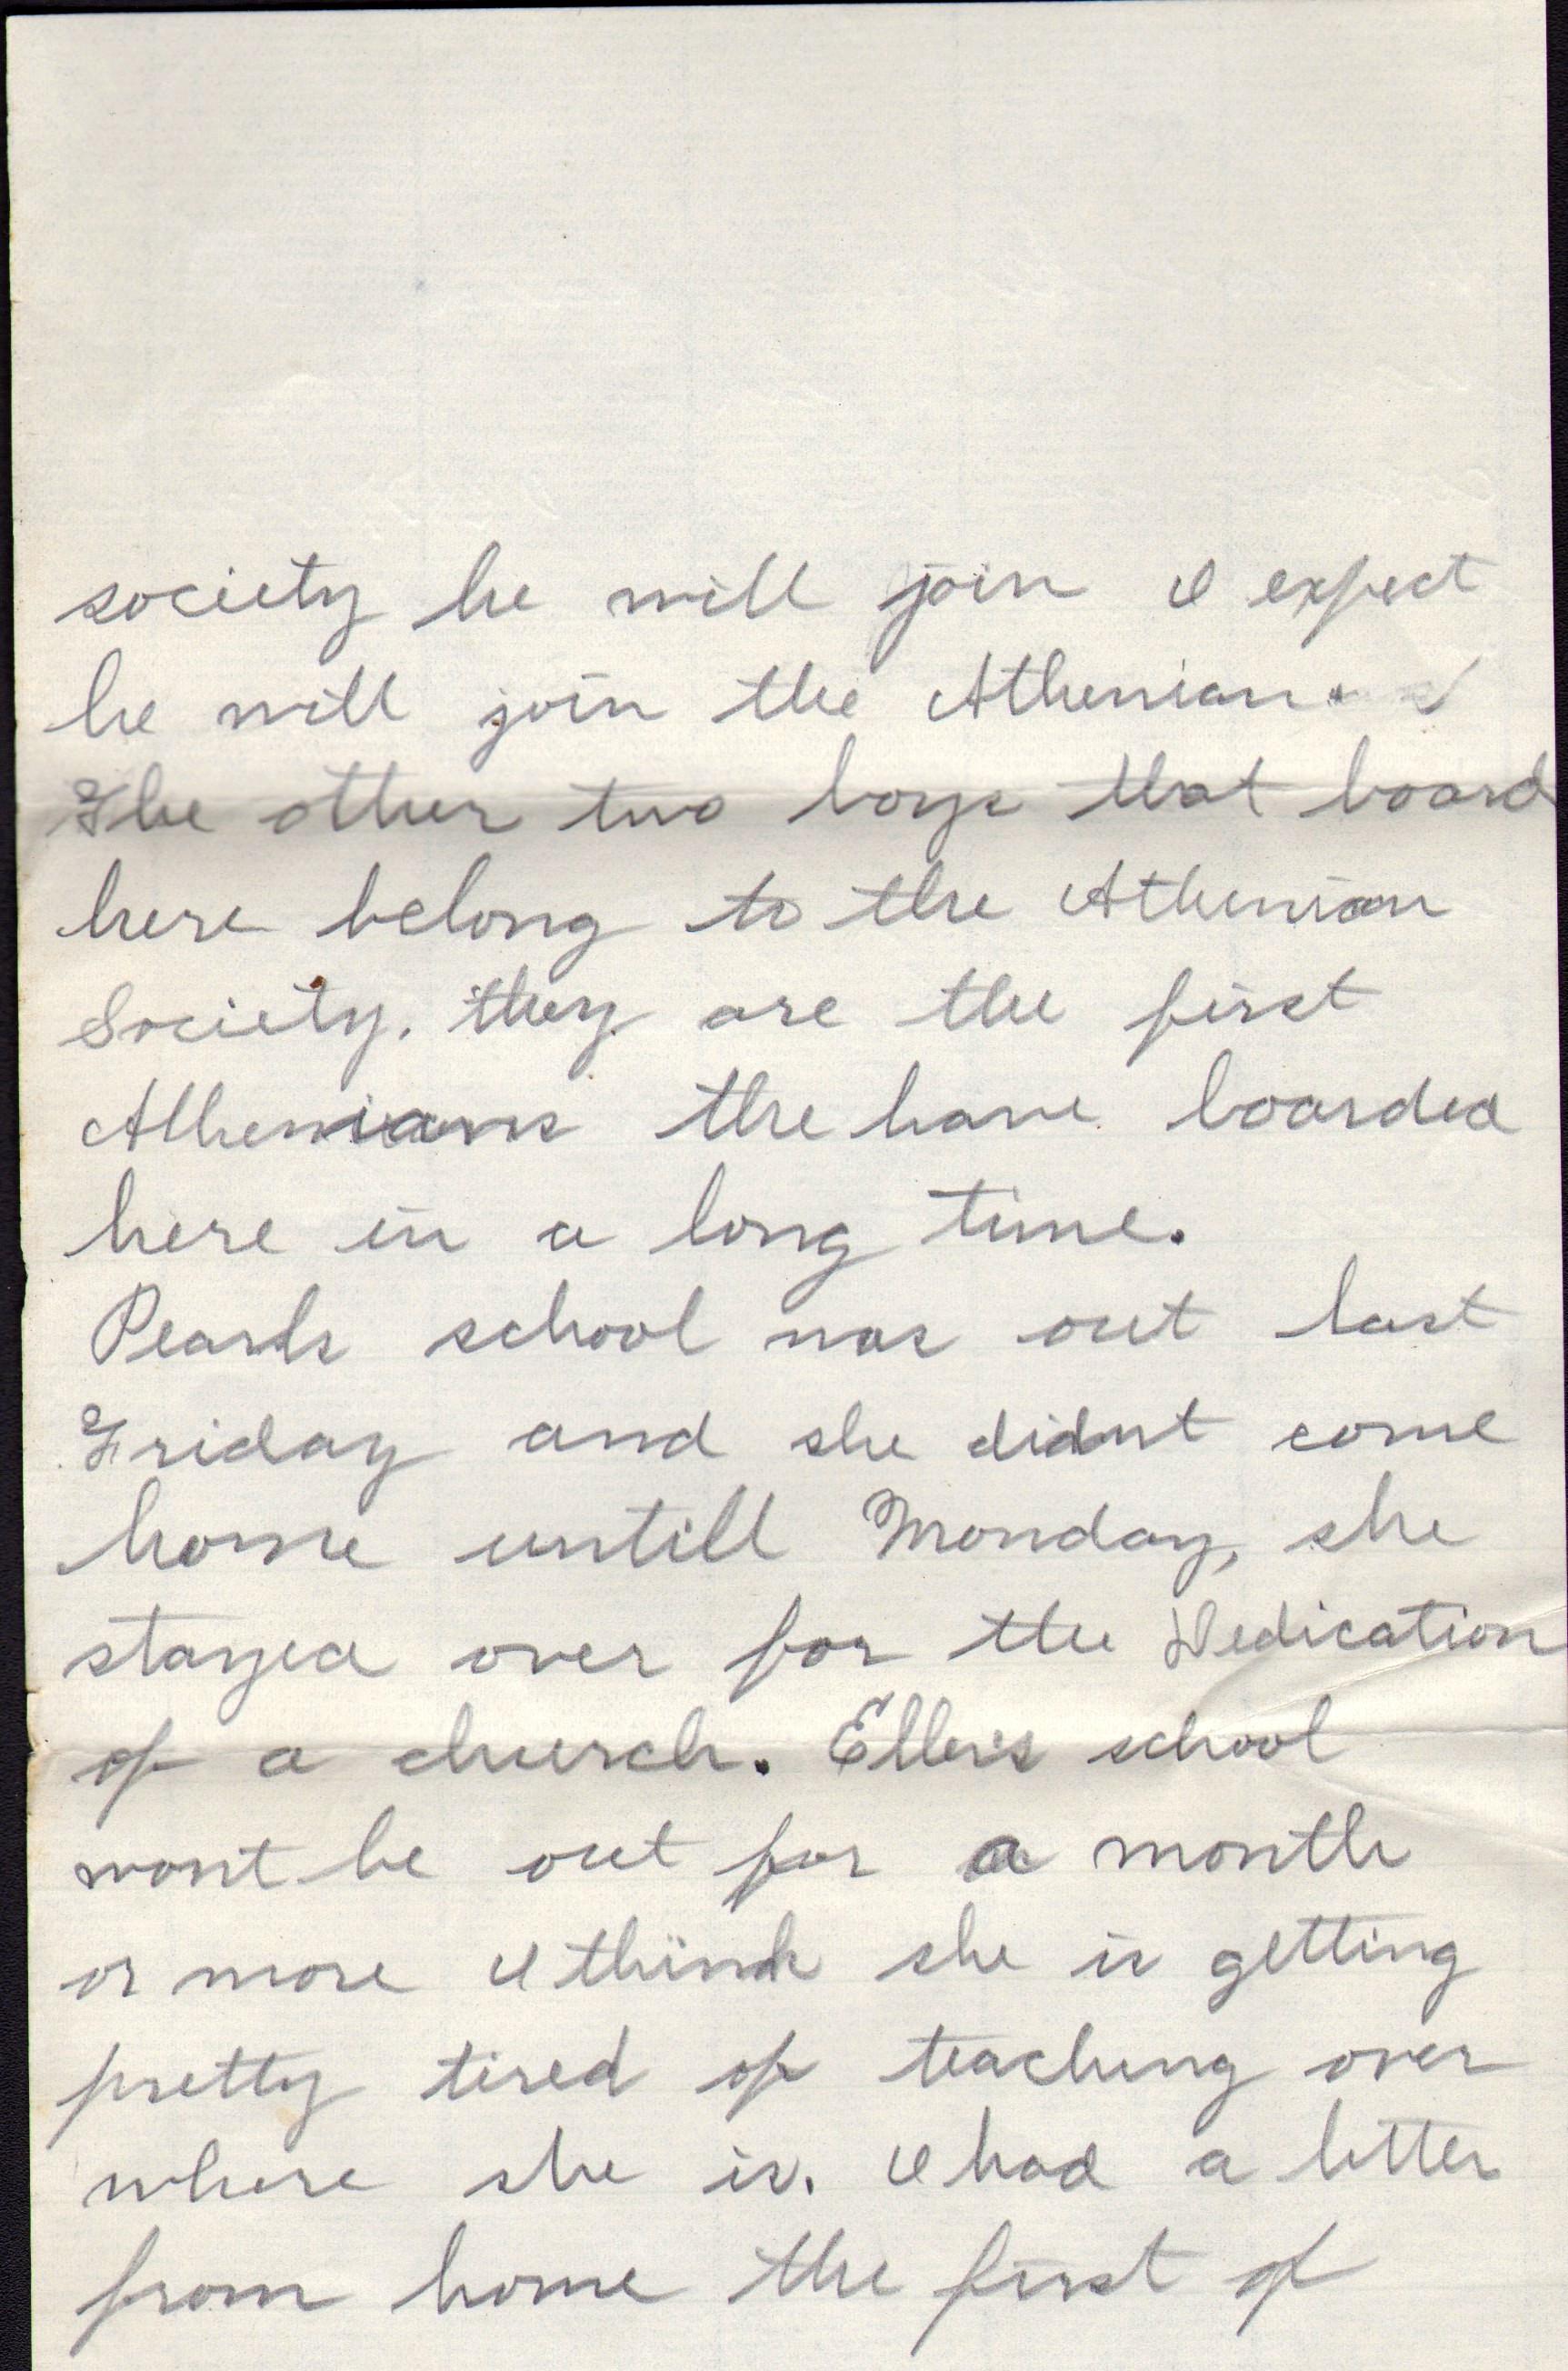 society he will join I expect
he will join the Athenians
The other two boys that board
here belong to the Athenian
Society. they are the first
Athenians the have boarded
here in a long time.
Pearls school was out last
Friday and she didnt come
home untill Monday, she
stayed over for the Dedication
of a church. Ellen's school
wont be out for a month
or more I think she is getting
pretty tired of teaching over
where she is. I had a letter
from home the first of